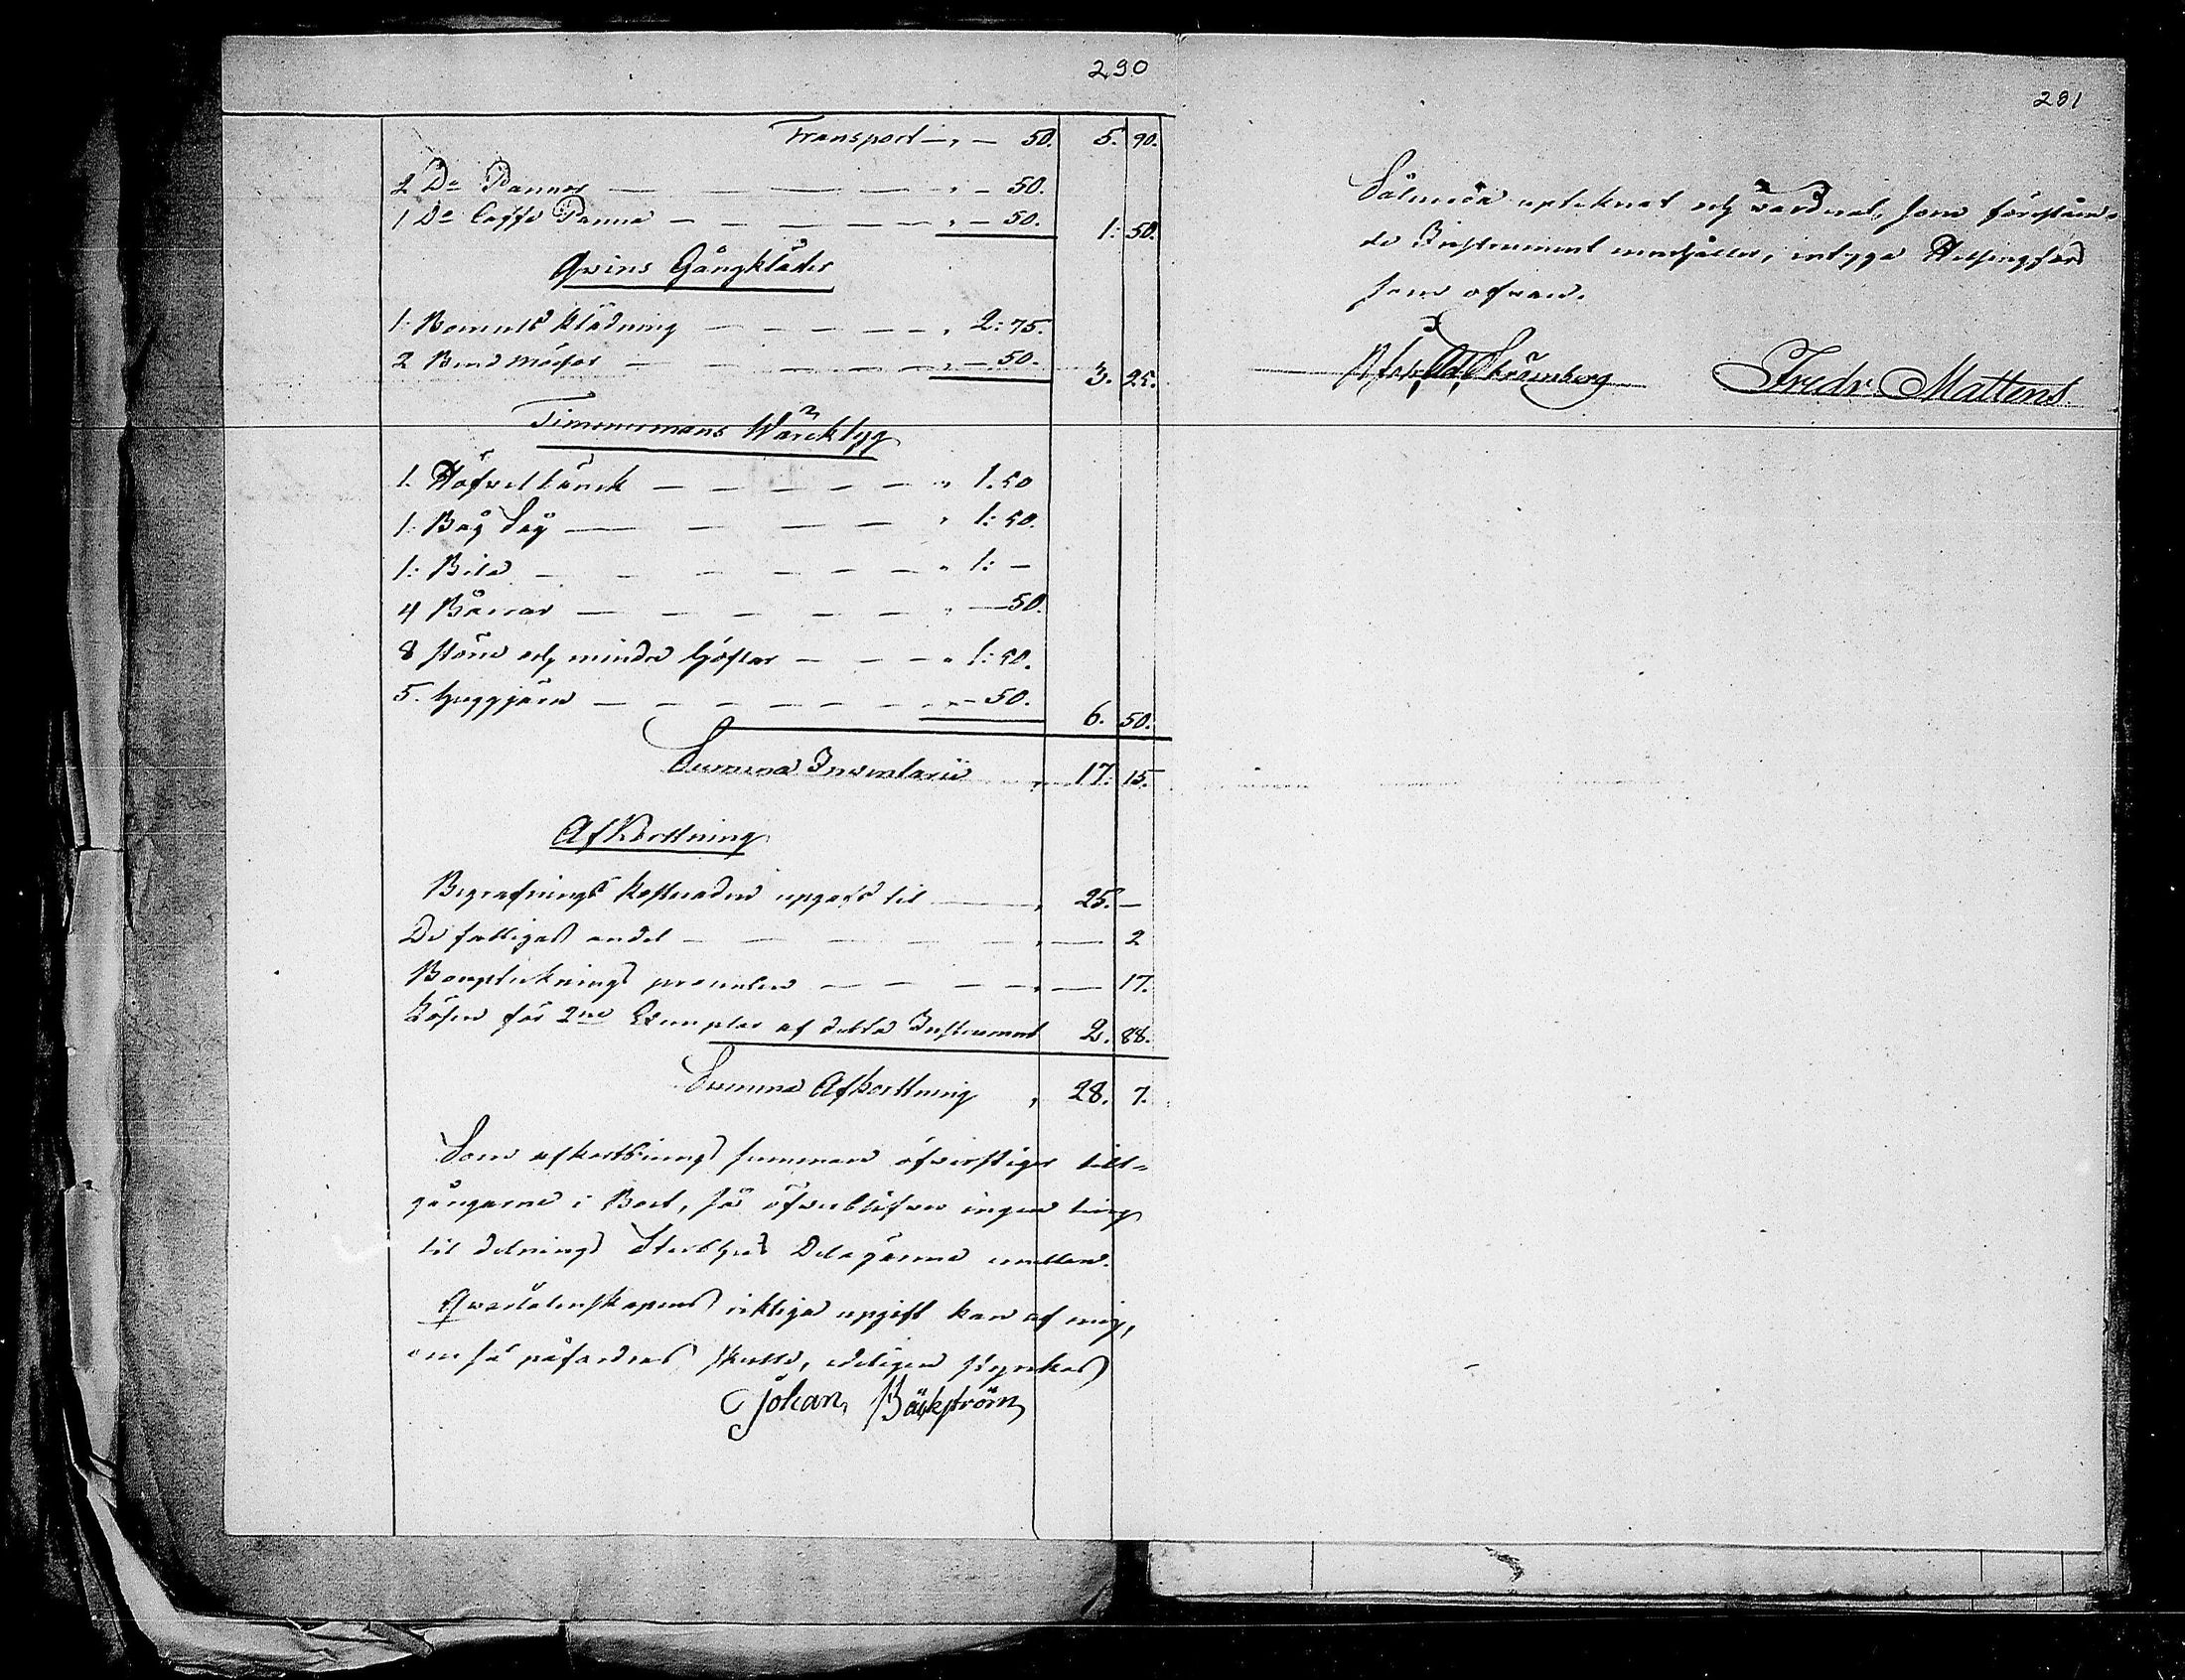 290
Transport — „ — 50. 5. 90.
2 Do Pannor — — — — „ — 50.
1 Do Caffe Panna — — — — „ — 50. 1: 50.
Qvins Gångkläder
1: Bomuls Klädning — — — — — „ 2: 75.
2 Bindmössor — — — — — „ — 50. 3. 25.
Timmermans Wärcktyg
1. Höfvelbänck — — — — — „ 1. 50
1: Båg Såg — — — — „ 1: 50.
1: Bila — — — — — — „ 1: —
4 Bårrar — — — — — „ — 50.
8 större och mindre Höflar — — — „ 1: 50.
5. Huggjärn — — — — — — „ — 50. 6. 50.
Summa Inventarii „ 17: 15.
Afkortning
Begrafnings kostnaden upgafs til — „ 25. —
De fattigas andel — — — — — „ — 2
Bouptecknings procenten — — — — „ — 17.
Lösen för 2ne Exemplar af detta Instrument 2. 88.
Summa Afkortning „ 28. 7.
Som afkortnings summan öfverstiger till-
gångarne i Boet, så öfverblifver ingen ting
til delning Sterbhus Delägarne emellan.
Qvarlåtenskapens riktiga upgift kan af mig,
om så påfordras skulle, edeligen styrkas
Johan Bäckström
291
Sålunda uptecknat och värderat, som förestån-
de Instrument innehåller, intyga Helsingfors
som ofvan.
Ad. Strömberg Fredr. Mattens